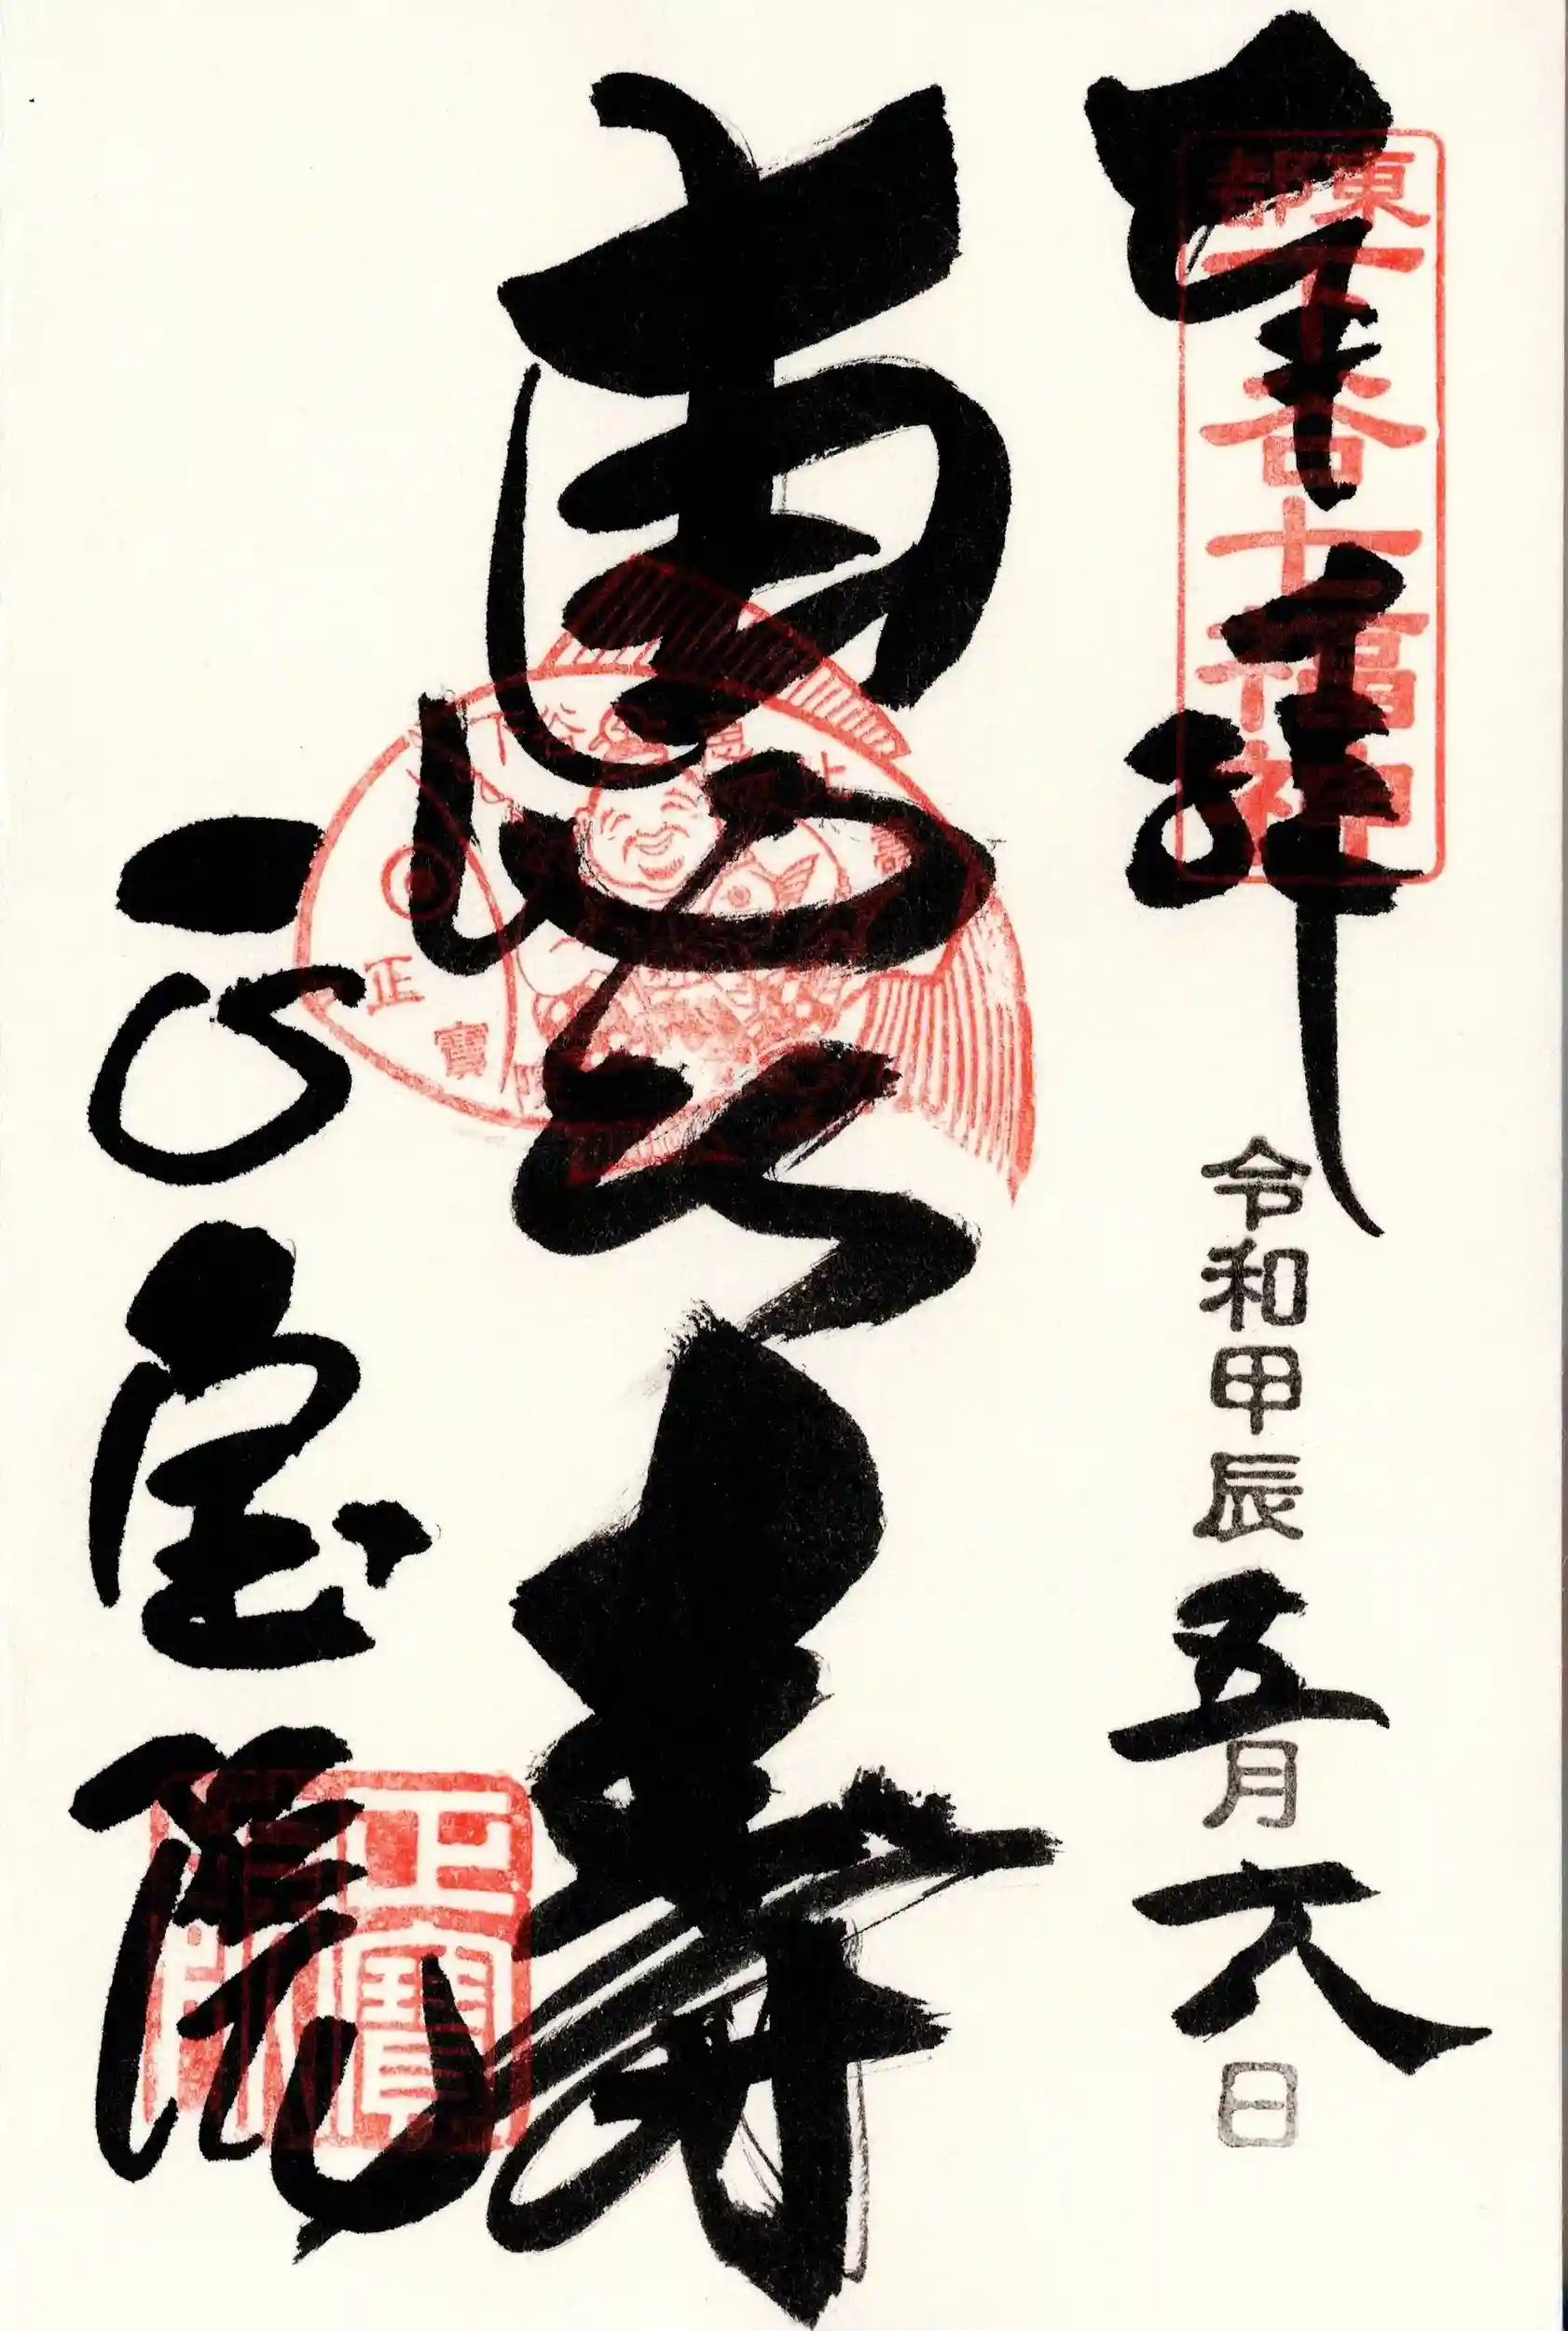 奉拝
東都下谷七福神
令和甲辰五月六日
恵比寿
正寶
正宝院
正寶院印